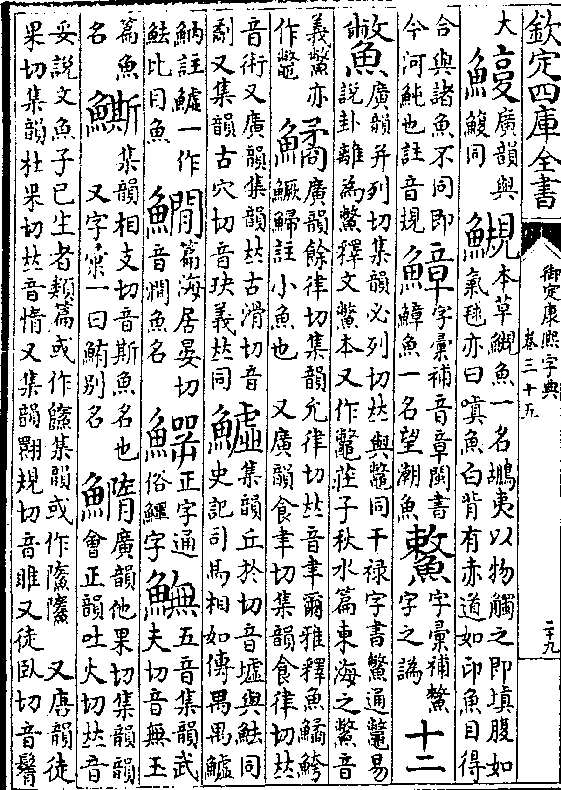 欽定四庫全書
御定康熙字典
卷三十五
二十九
大
廣韻與
鰒同
䲅本草䲅魚一名鯸夷以物觸之即填腹如
氣毬亦曰嗔魚白背有赤道如印魚目得
合與諸魚不同即
今河魨也註音規
鱆字彙補音章閩書
鱆魚一名望潮魚
字彙補鰲
字之譌
十二
鱉廣韻并列切集韻必列切𠀤與鼈同干祿字書鱉通鼈易
說卦離為鱉釋文鱉本又作鼈莊子秋水篇東海之鱉音
義鱉亦
作鼈
鱊廣韻餘律切集韻允律切𠀤音聿爾雅釋魚鱊鮬
鱖鯞註小魚也 又廣韻食聿切集韻食律切𠀤
音術又廣韻集韻𠀤古滑切音
劀又集韻古穴切音玦義𠀤同
鱋集韻丘於切音墟與魼同
史記司馬相如傳禺禺鱋
魶註鱋一作
魼比目魚
篇海居晏切
音澗魚名
正字通
俗鱷字
五音集韻武
夫切音無玉
篇魚
名
集韻相支切音斯魚名也
又字彙一曰鮪別名
廣韻他果切集韻韻
會正韻吐火切𠀤音
妥說文魚子已生者類篇或作集韻或作 又唐韻徒
果切集韻杜果切𠀤音惰又集韻翾規切音睢又徒臥切音鬌